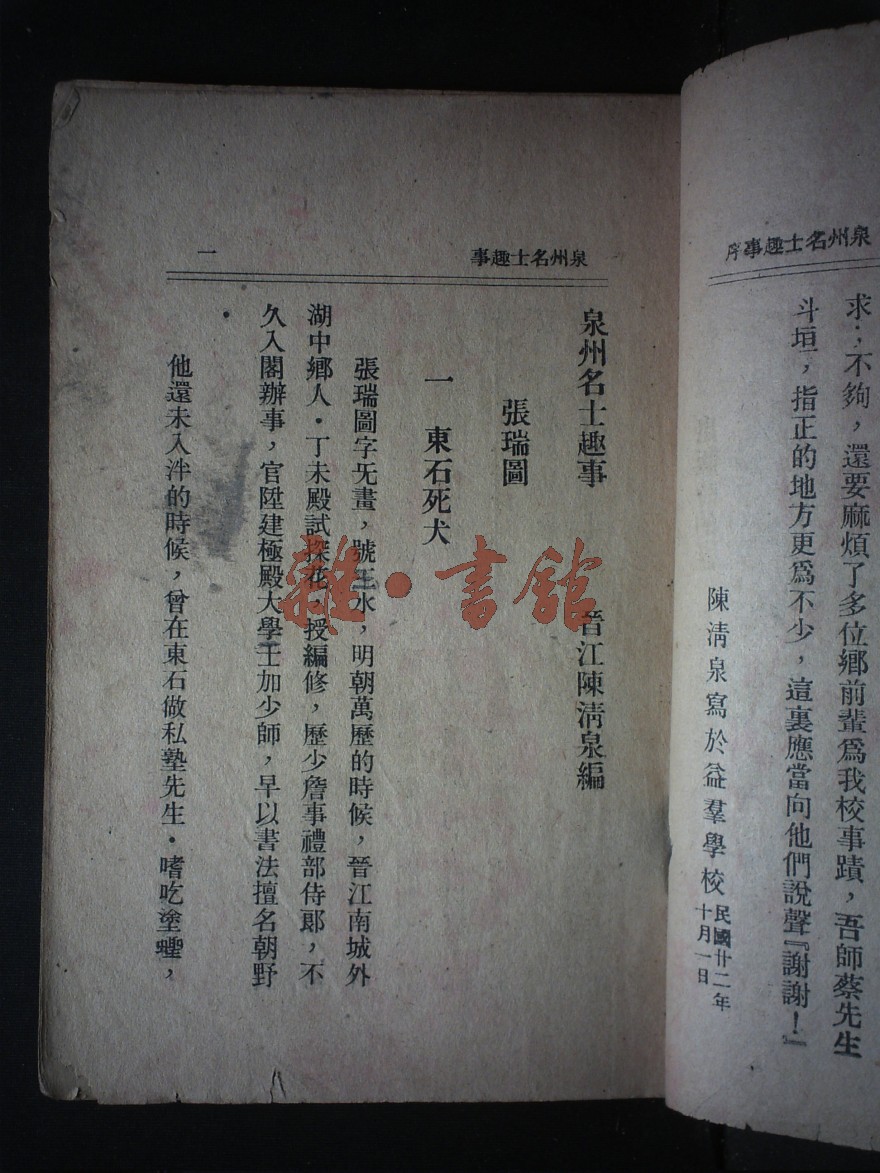 泉州名士趣事序
求；不夠，還要麻煩了多位鄉前輩爲我校事蹟，吾師蔡先生
斗垣，指正的地方更爲不少，這裏應當向他們說聲『謝謝！』
陳淸泉寫於益羣學校
民國廿二年
十月一日
泉州名士趣事
一
泉州名士趣事
晉江陳淸泉編
張瑞圖
一 東石死犬
張瑞圖字旡畫，號二水，明朝萬歷的時候，晉江南城外
湖中鄉人・丁未殿試探花，授編修，歷少詹事禮部侍郎，不
久入閣辦事，官陞建極殿大學士加少師，早以書法擅名朝野
・
他還未入泮的時候，曾在東石做私塾先生・嗜吃塗蟶，
雜・書館